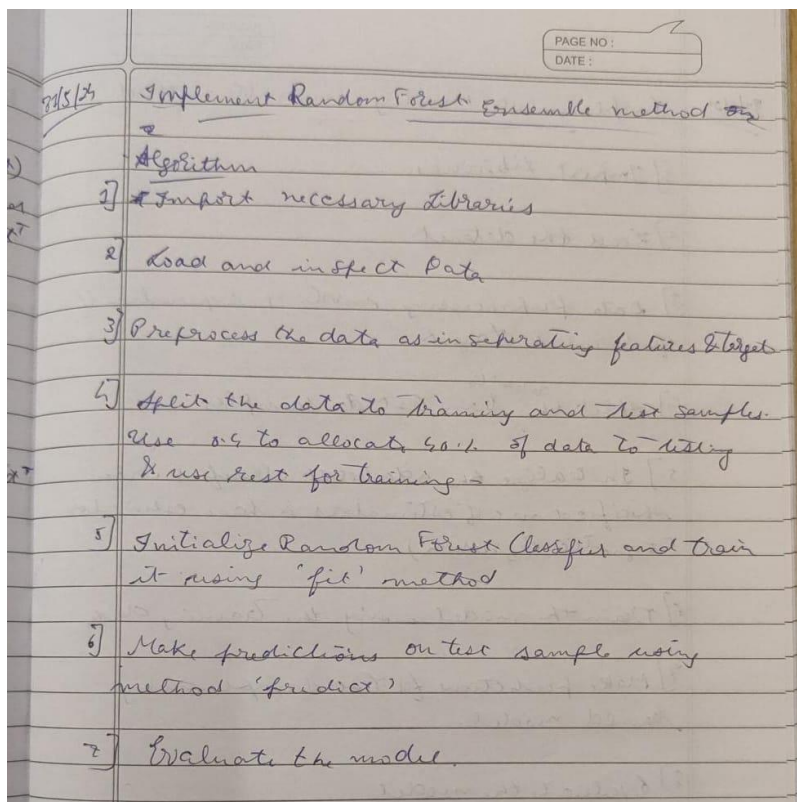 PAGE NO :
DATE :
31/5/24
Implement Random Forest Ensemble method on
Algorithm
1] Import necessary Libraries
2] Load and inspect Data
3] Preprocess the data as in seperating features & target
4] Split the data to training and test samples.
Use 0.4 to allocate 40.% of data to testing
& use rest for training -
5] Initialize Random Forest Classifier and train
it using 'fit' method
6] Make predictions on test sample using
method 'predict'
7] Evaluate the model.